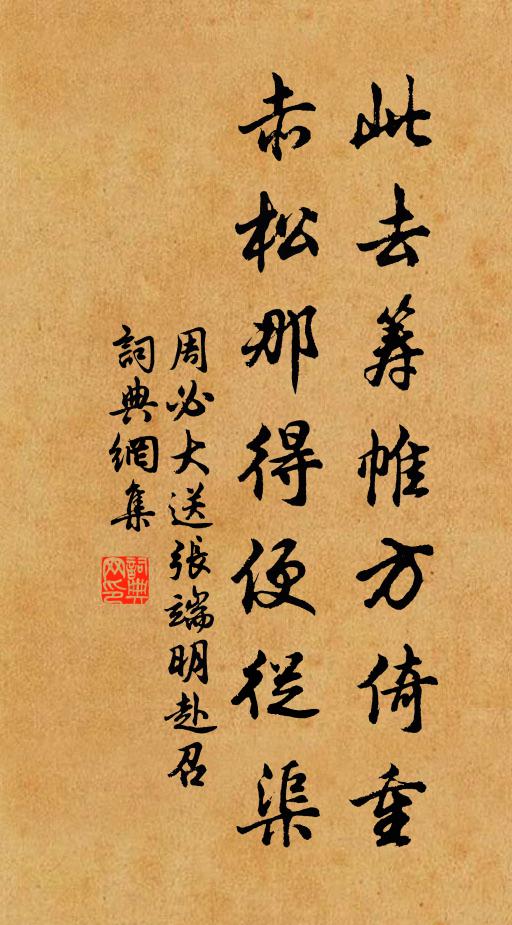 此去筹帷方倚重
赤松那得便從渠
周必大送張端明赴召
詞典網集
詞典网印